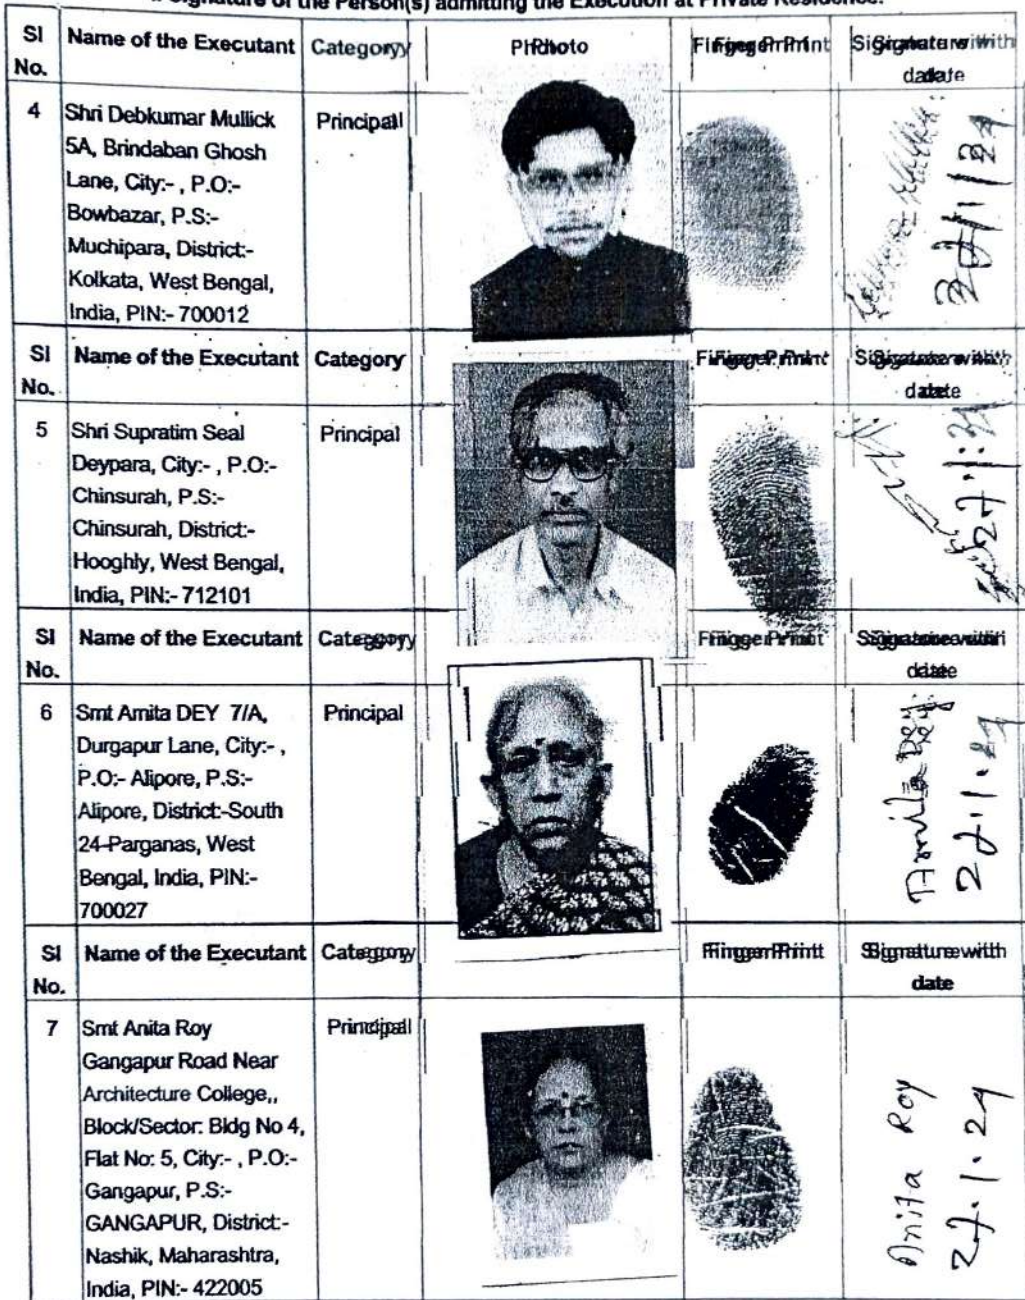 Signature of the Person(s) admitting the Execution at Private Residence.
Sl No. Name of the Executant Category Photo Finger Print Signature with date
4 Shri Debkumar Mullick Principal
5A, Brindaban Ghosh
Lane, City:- , P.O:-
Bowbazar, P.S:-
Muchipara, District:-
Kolkata, West Bengal,
India, PIN:- 700012
Sl No. Name of the Executant Category Finger Print Signature with date
5 Shri Supratim Seal Principal
Deypara, City:- , P.O:-
Chinsurah, P.S:-
Chinsurah, District:-
Hooghly, West Bengal,
India, PIN:- 712101
Sl No. Name of the Executant Category Finger Print Signature with date
6 Smt Amita DEY 7/A, Principal
Durgapur Lane, City:- ,
P.O:- Alipore, P.S:-
Alipore, District:-South
24-Parganas, West
Bengal, India, PIN:-
700027
Amita Dey.
27.1.24
Sl No. Name of the Executant Category Finger Print Signature with date
7 Smt Anita Roy Principal
Gangapur Road Near
Architecture College,,
Block/Sector: Bldg No 4,
Flat No: 5, City:- , P.O:-
Gangapur, P.S:-
GANGAPUR, District:-
Nashik, Maharashtra,
India, PIN:- 422005
Anita Roy
27.1.24